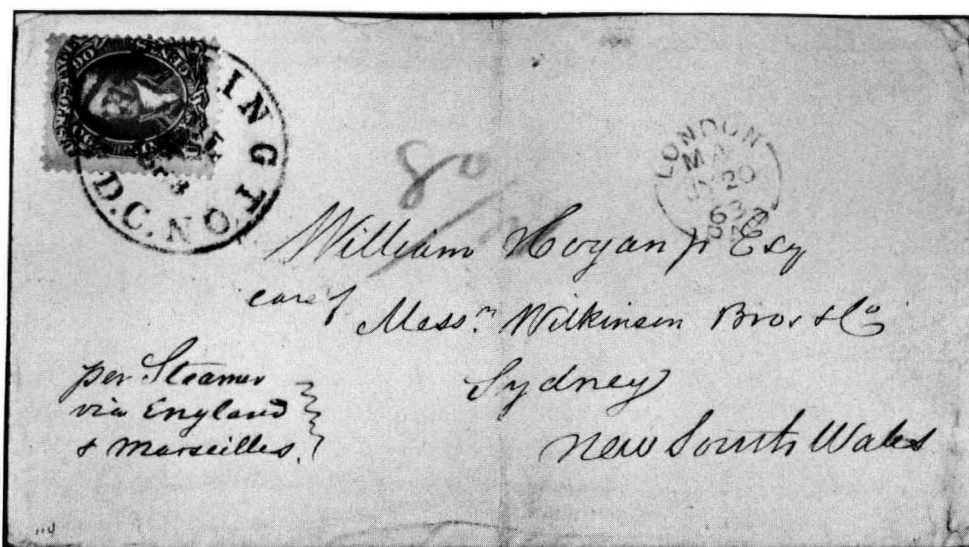 U.S. POSTAGE
90 90
WASHINGTON
D.C.
80
LONDON
MA
JY 20
63
William Hogan jr Esq
care of
Messrs. Wilkinson Bros & Co
Sydney
New South Wales
per Steamer
via England
& Marseilles.